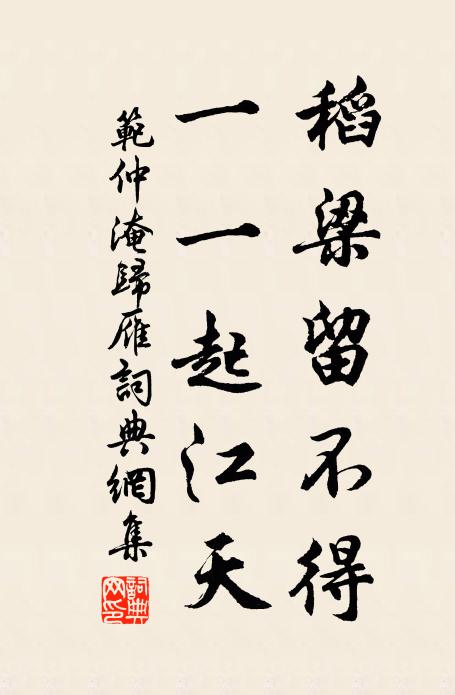 稻梁留不得
一一起江天
範仲淹歸雁詞典網集
詞典
网印